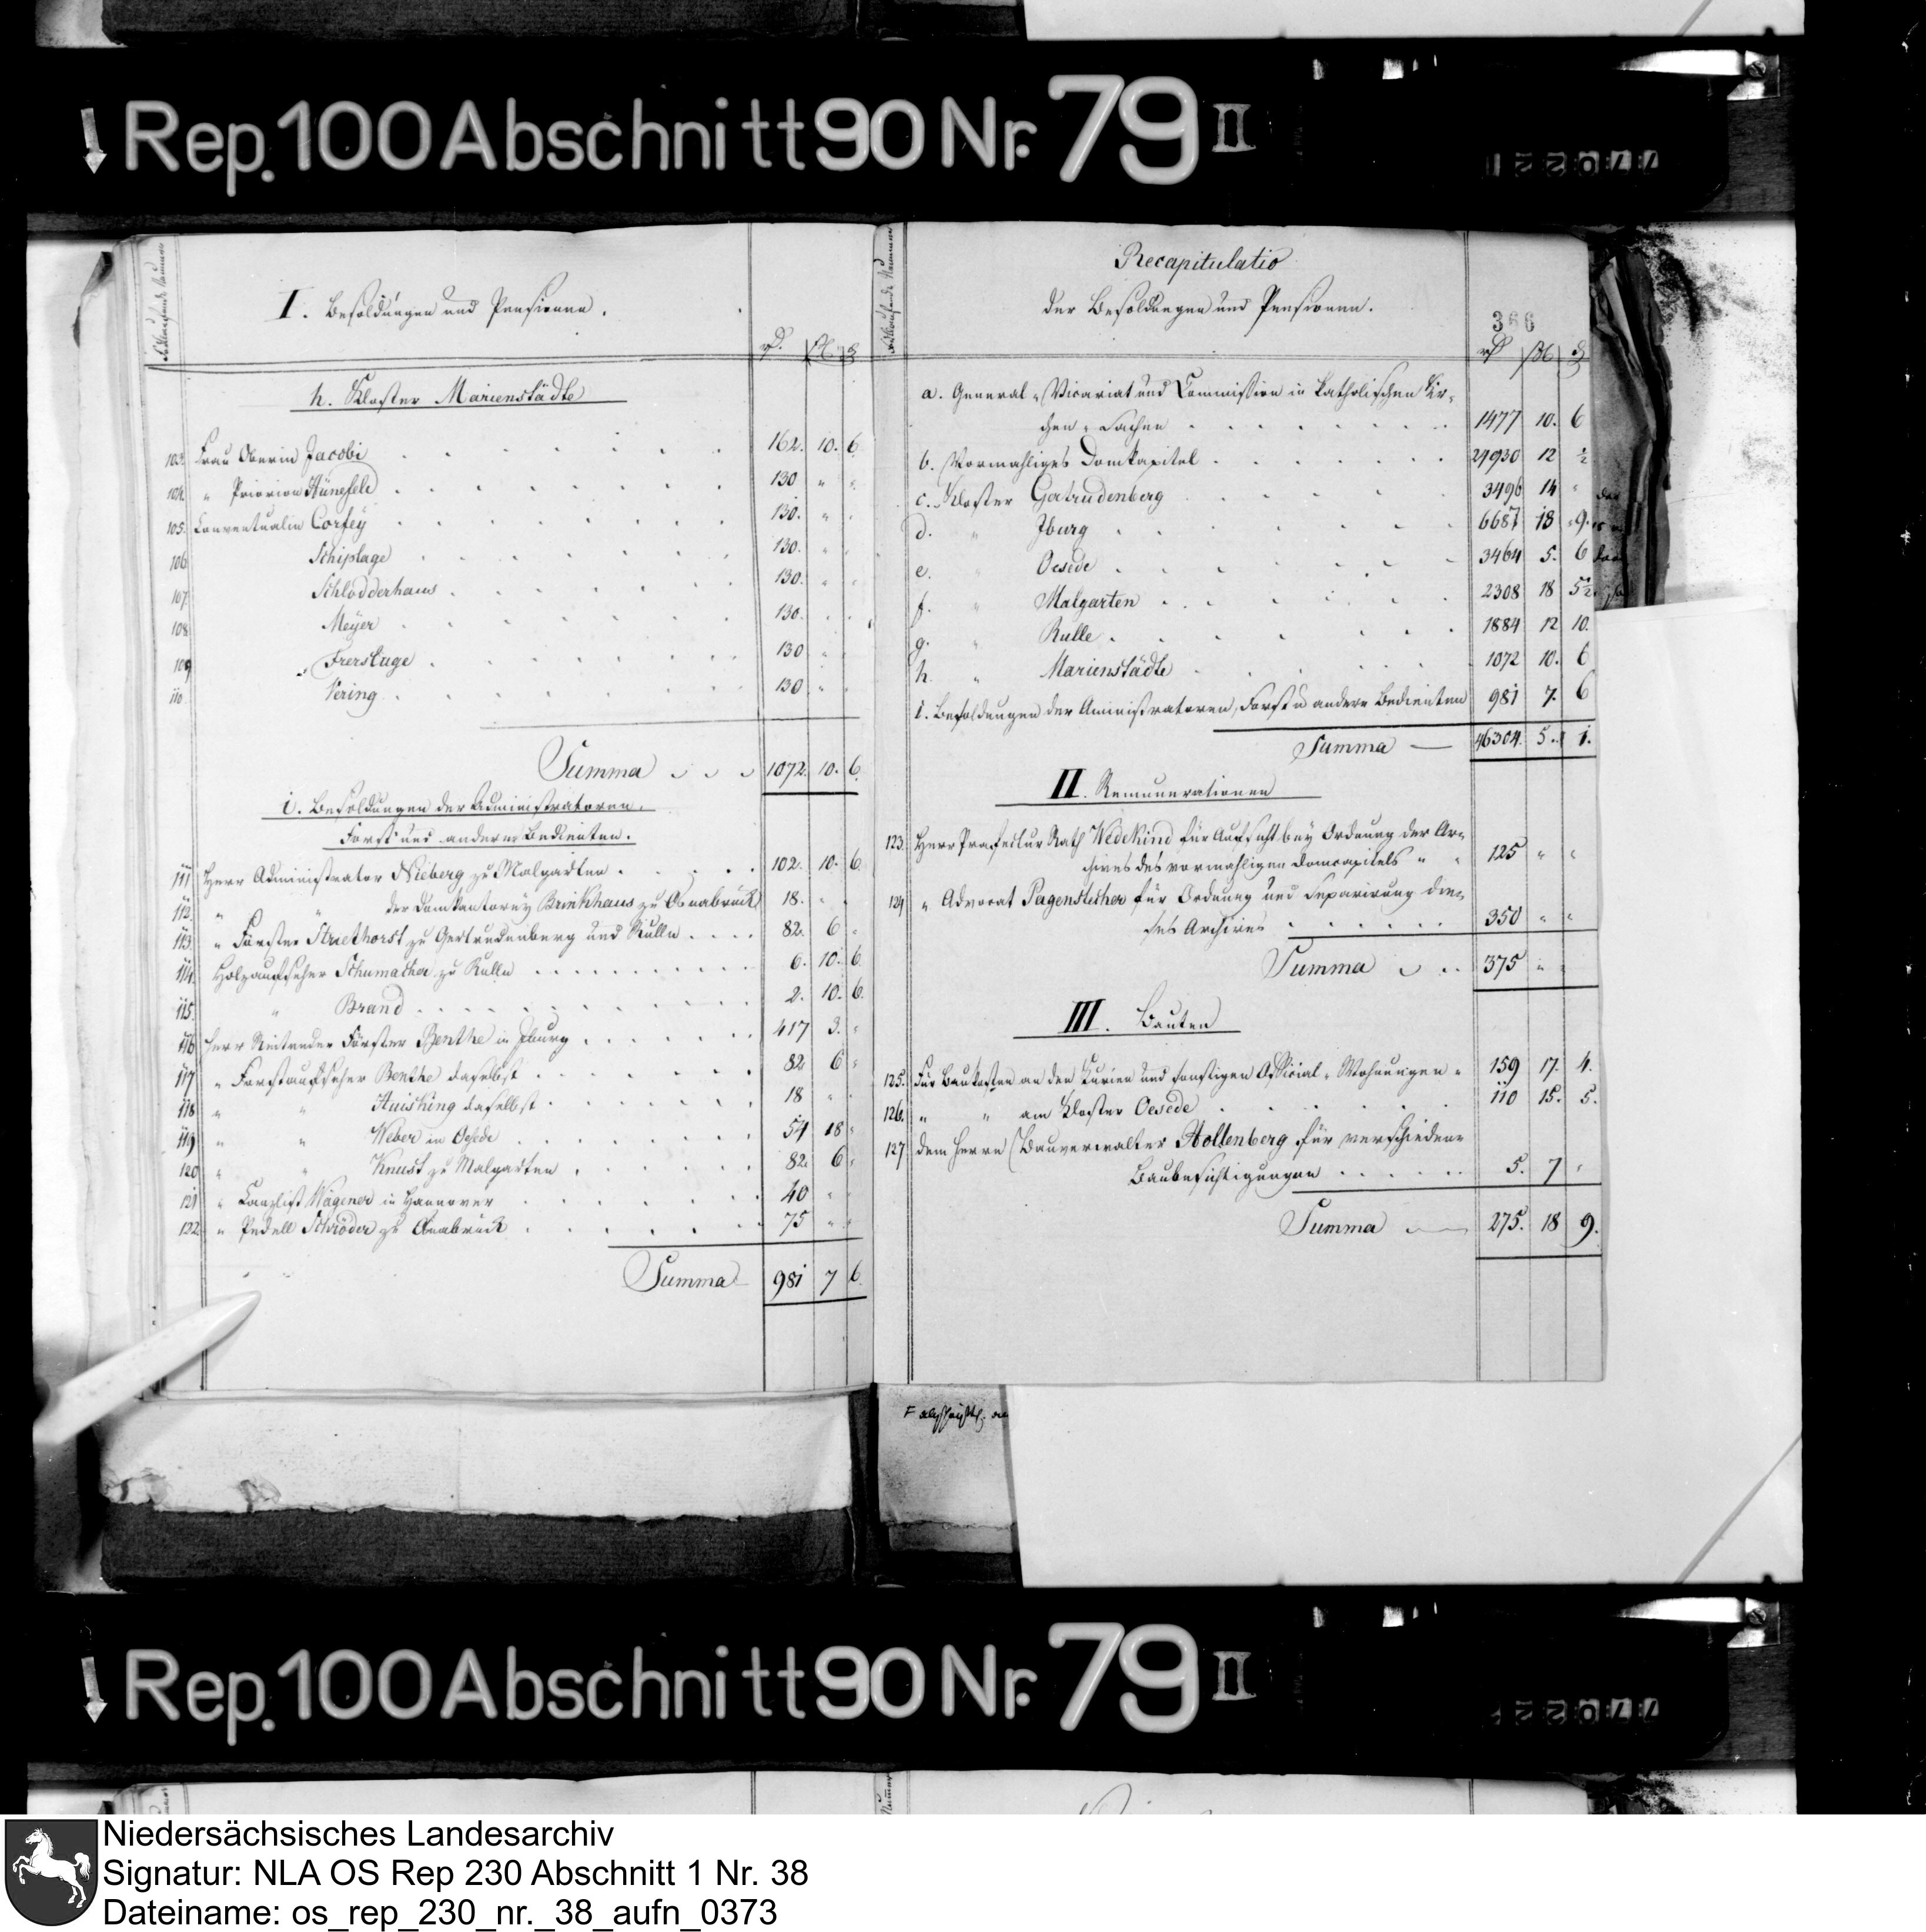 Rep. 100 Abschnitt 90 Nr. 79 II
77022
I. Besoldungen und Pensionen.
h. Kloster Marienstädte
103. Frau Oberin Jacobi 162. 10. 6.
104. " Priorin Hünefeld 130 " "
105. Conventualin Corfey 130. " "
106 Schiplage 130. " "
107. Schlodderhaus 130. " "
108 Meyer 130. " "
109 Frerstuge 130 " "
110. Vering 130 " "
Summa 1072. 10. 6.
i. Besoldungen der Administratoren,
Forst und anderer Bedienten.
111 Herr Administrator Nieberg zu Malgarten 102. 10. 6.
112. " " der Domkantorey Brinkhaus zu Osnabrück 18. " "
113. " Förster Striethorst zu Gertrudenberg und Rulle 82. 6 "
114. Holzaufseher Schumacher zu Rulle 6. 10. 6.
115. " Brand 2. 10. 6.
116 Herr Reitender Förster Benthe in Iburg 417 3. "
117 " Forstaufseher Benthe daselbst 82 6 "
118 " " Huisking daselbst 18 " "
119 " " Weber in Oesede 54 18 "
120 " " Knust zu Malgarten 82. 6 "
121 " Canzlist Wagener in Hannover 40 " "
122. " Pedell Schröder zu Osnabrück 75 " "
Summa 981 7 6.
Recapitulatio
der Besoldungen und Pensionen.
366
a. General-Vicariat und Commission in katholischen Kir-
chen-Sachen 1477 10. 6
b. Vormahliges Domkapitel 24930 12 ½
c. Kloster Gertrudenberg 3496 14 "
d. " Iburg 6687 18 9.
e. " Oesede 3464 5. 6
f. " Malgarten 2308 18 5½
g. " Rulle 1884 12 10.
h. " Marienstädte 1072 10. 6
i. Besoldungen der Aministratoren, Forst u andere Bedienten 981 7. 6
Summa 46304. 5. 1.
II. Remunerationen
123. Herr Praefectur Rath Wedekind für Aufsicht bey Ordnung der Ar-
chives des vormahligen Domcapitels 125 " "
124 " Advocat Pagenstecher für Ordnung und Separirung die-
ses Archives 350 " "
Summa 375 " "
III. Bauten
125. Für Baukosten an den Curien und sonstigen Official-Wohnungen 159 17. 4.
126. " " am Kloster Oesede 110 15. 5.
127 dem Herrn Bauverwalter Hollenberg für verschiedene
Baubesichtigungen 5. 7 "
Summa 275. 18 9.
Rep. 100 Abschnitt 90 Nr. 79 II
Niedersächsisches Landesarchiv
Signatur: NLA OS Rep 230 Abschnitt 1 Nr. 38
Dateiname: os_rep_230_nr._38_aufn_0373